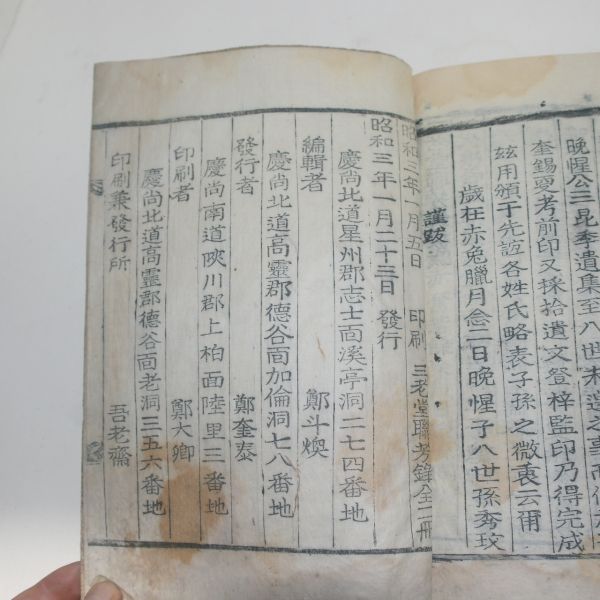 晩惺公三昆季遺集至八世未遑之事而
奎錫更考前印又採拾遺文登梓監印乃得完成
玆用頒于先誼各姓氏略表子孫之微衷云爾
歲在赤兔臘月念二日晩惺子八世孫秀玟
謹跋
昭和三年一月五日 印刷 三老堂聯芳錄全二冊
昭和三年一月二十三日 發行
慶尚北道星州郡志士面溪亭洞二七四番地
編輯者 鄭斗煥
慶尚北道高靈郡德谷面加倫洞七八番地
發行者 鄭奎泰
慶尚南道陜川郡上栢面陸里三番地
印刷者 鄭大卿
慶尚北道高靈郡德谷面老洞三五六番地
印刷兼發行所 吾老齋